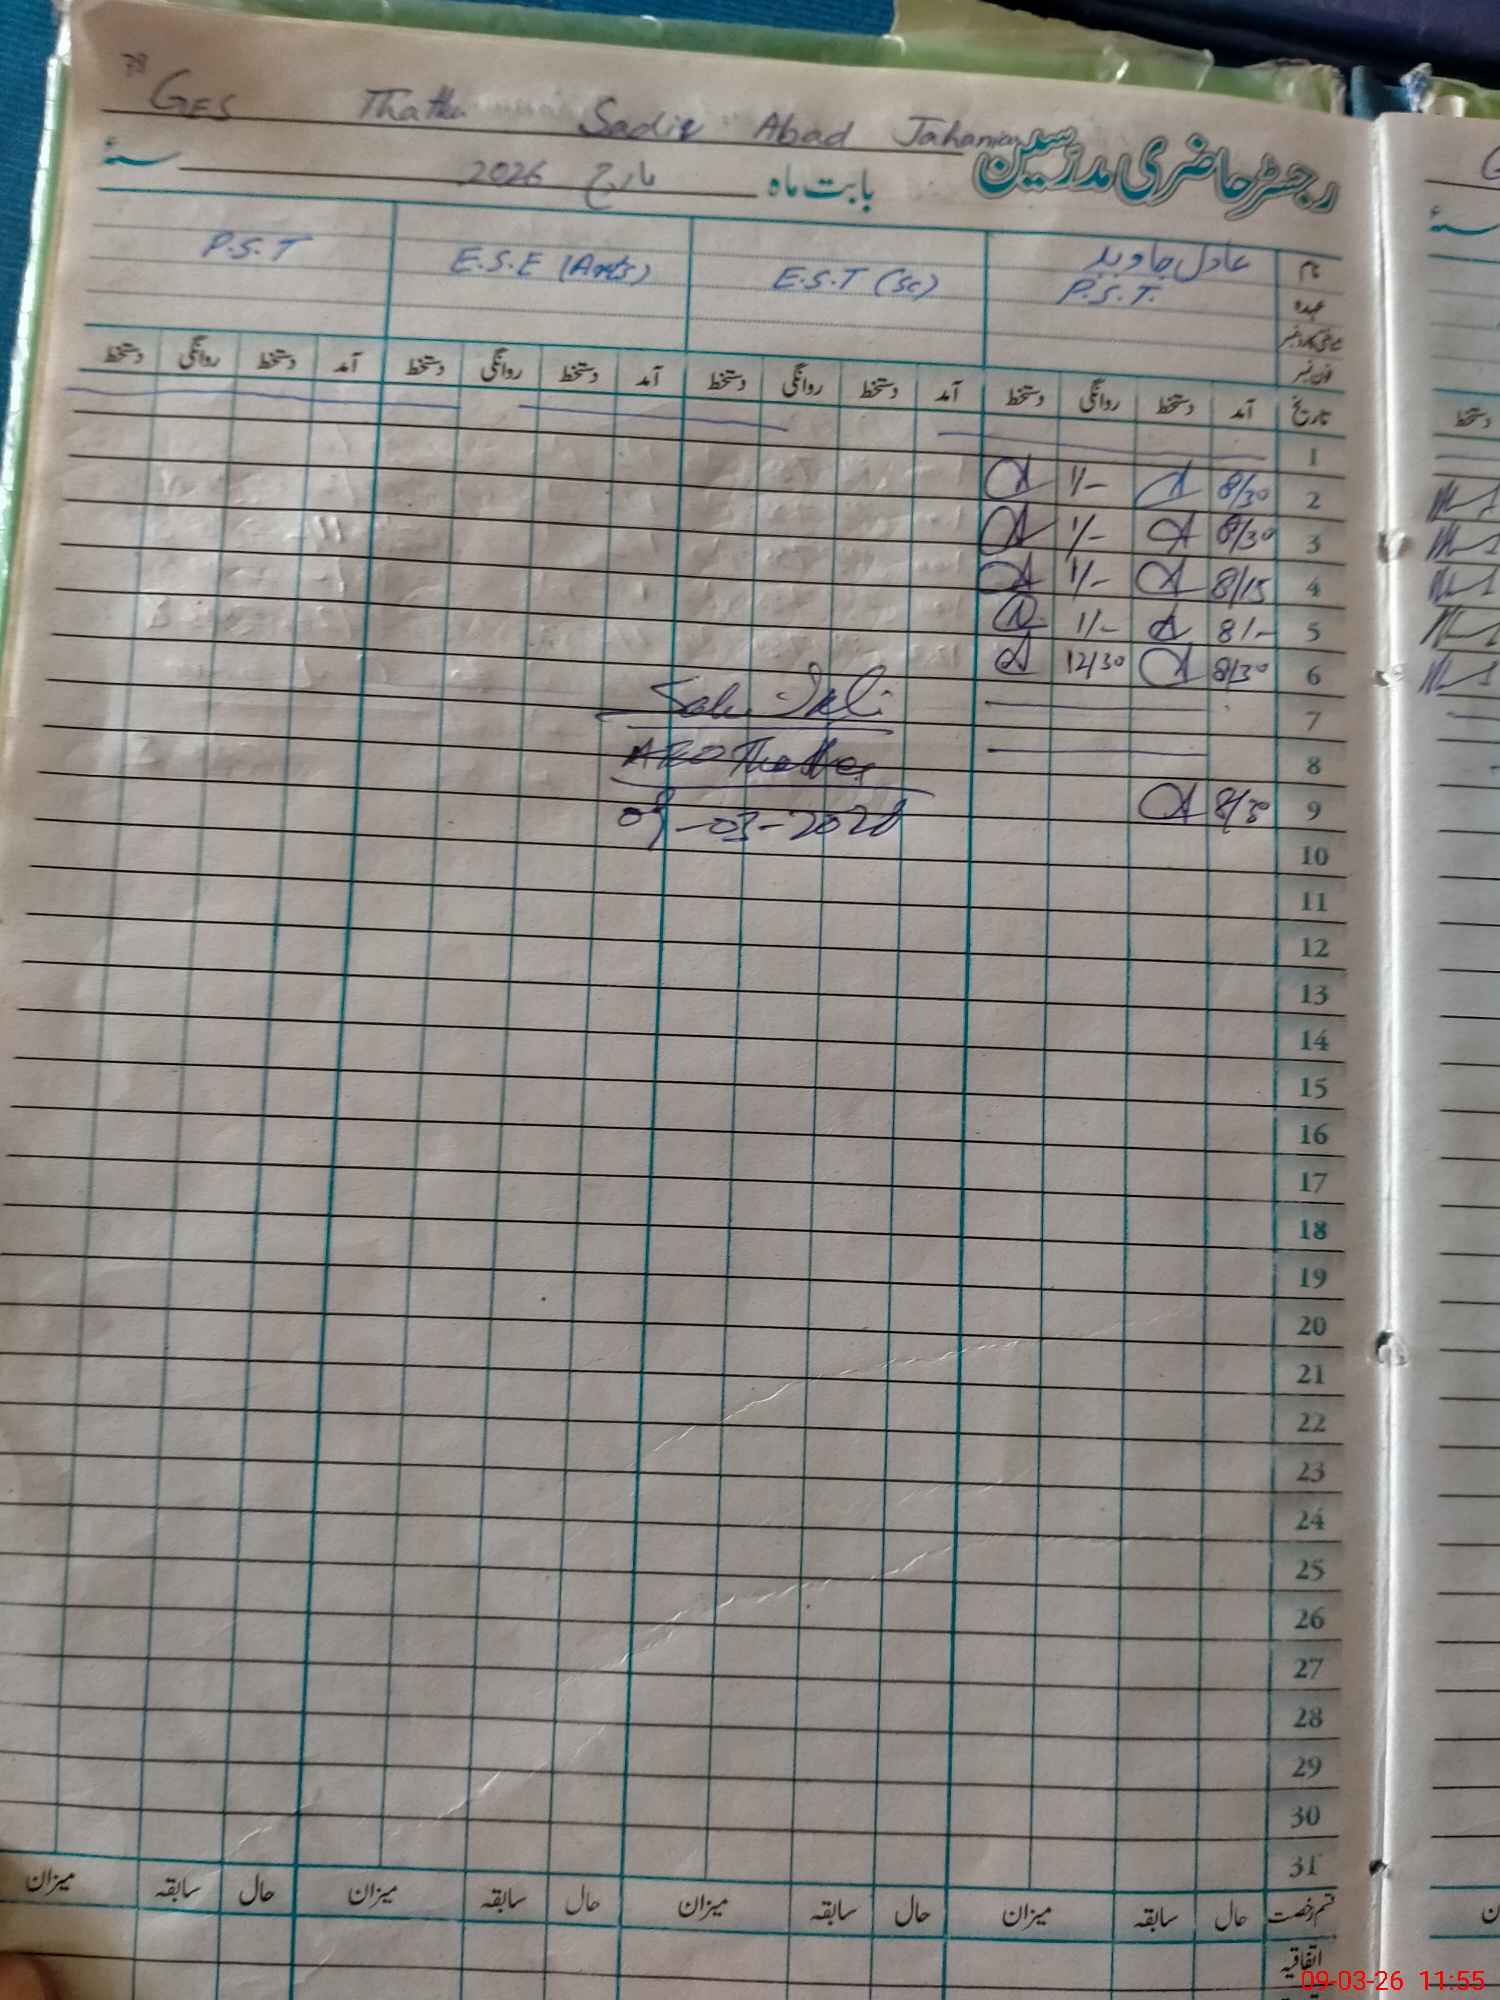 GES Thatha Sadiq Abad Jahanian
رجسٹر حاضری مدرسین
بابت ماہ مارچ 2026 سنہ
نام عادل جاوید
عہدہ P.S.T. E.S.T (Sc) E.S.E (Arts) P.S.T
فون نمبر
تاریخ آمد دستخط روانگی دستخط آمد دستخط روانگی دستخط آمد دستخط روانگی دستخط آمد دستخط روانگی دستخط
1
2 8/30 1/-
3 8/30 1/-
4 8/15 1/-
5 8/- 1/-
6 8/30 12/30
7
8
9 8/30
09-03-2026
10
11
12
13
14
15
16
17
18
19
20
21
22
23
24
25
26
27
28
29
30
31
قسم رخصت حال سابقہ میزان حال سابقہ میزان حال سابقہ میزان حال سابقہ میزان
اتفاقیہ
09-03-26 11:55